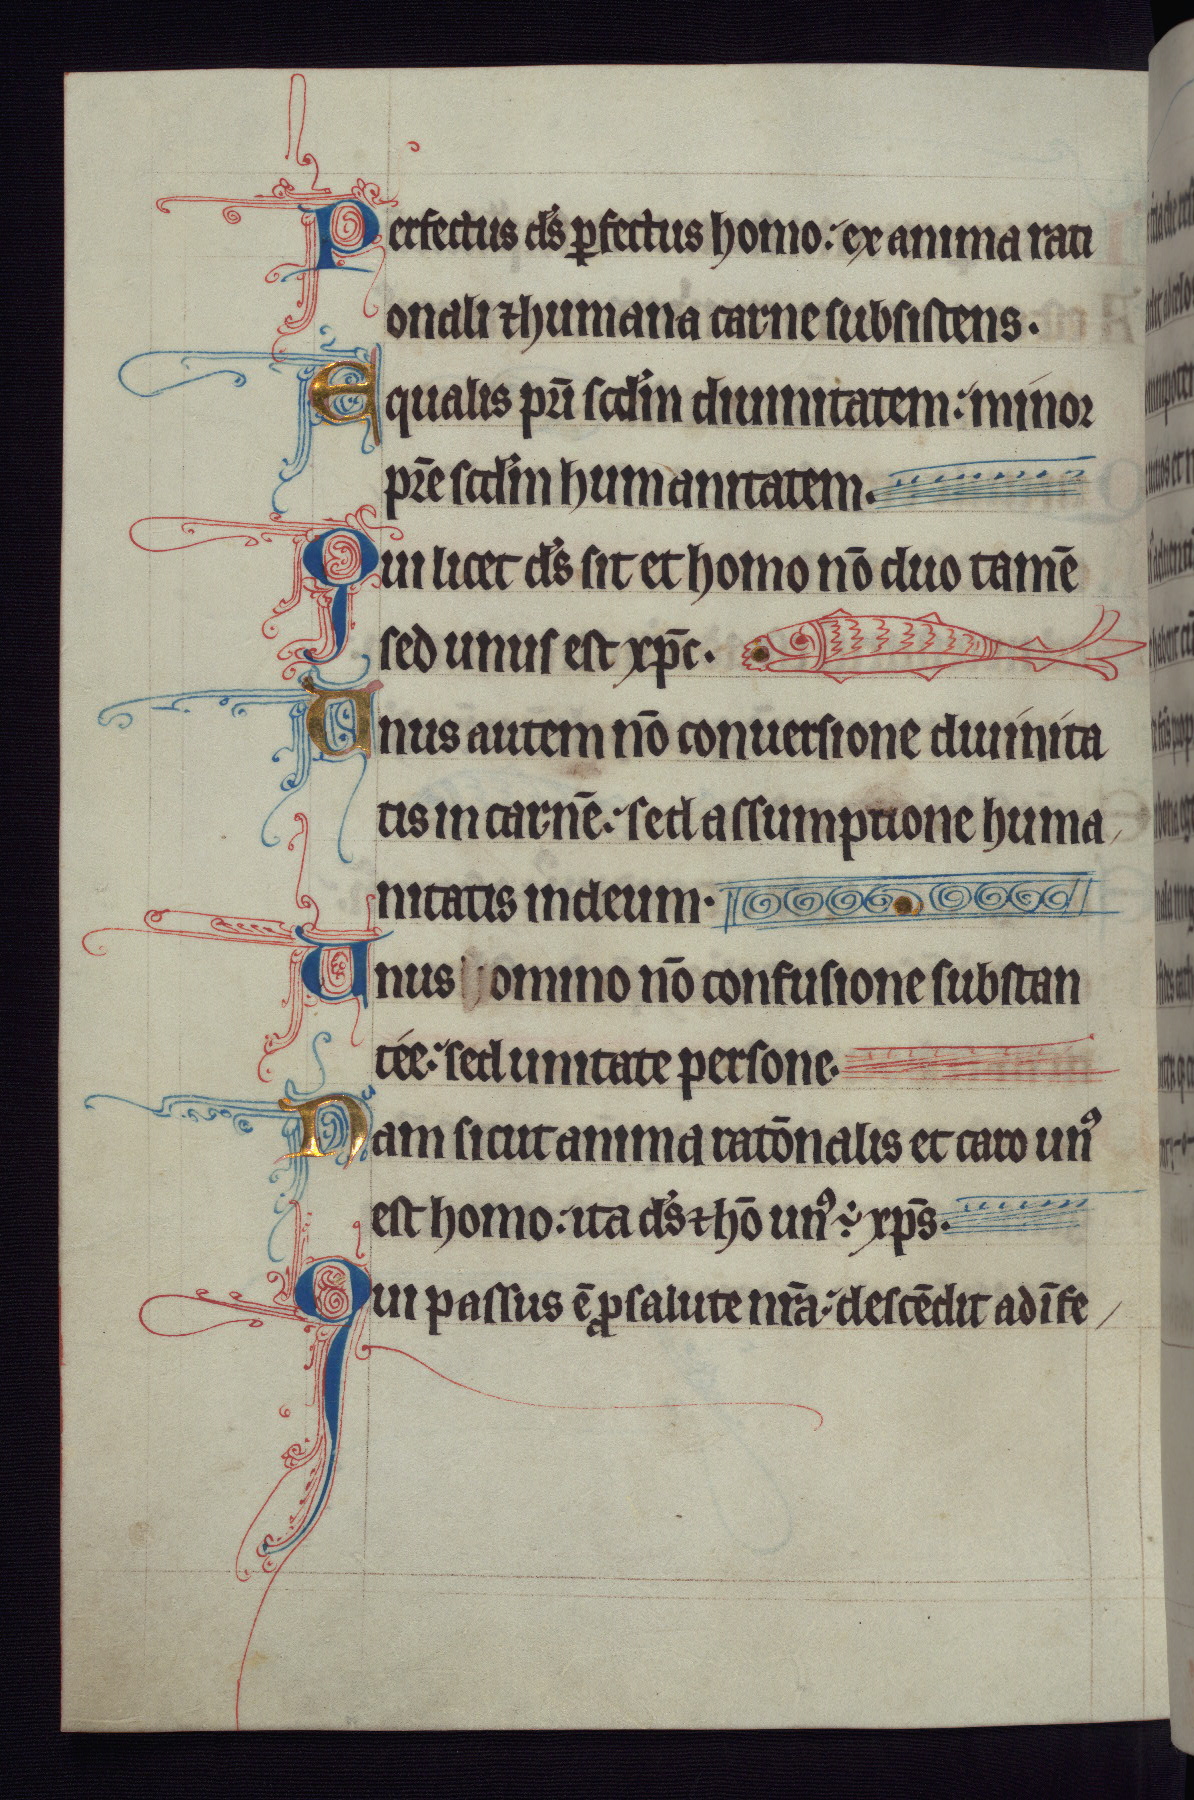 Perfectus ds̄ ꝑfectus homo: ex anima rati
onali ⁊ humana carne subsistens.
Equalis pr̄i scd̄m diuinitatem: minor
pr̄e scd̄m humanitatem.
Qui licet ds̄ sit et homo nō duo tamē
sed unus est xp̄c.
Unus autem nō conuersione diuinita
tis in carnē: sed assumptione huma
nitatis in deum.
Unus omnino nō confusione substan
tée: sed unitate persone.
Nam sicut anima ratōnalis et caro unꝰ
est homo: ita ds̄ ⁊ hō unꝰ ÷ xp̄s.
Qui passus ē ꝓ salute nr̄a: descēdit ad īfe